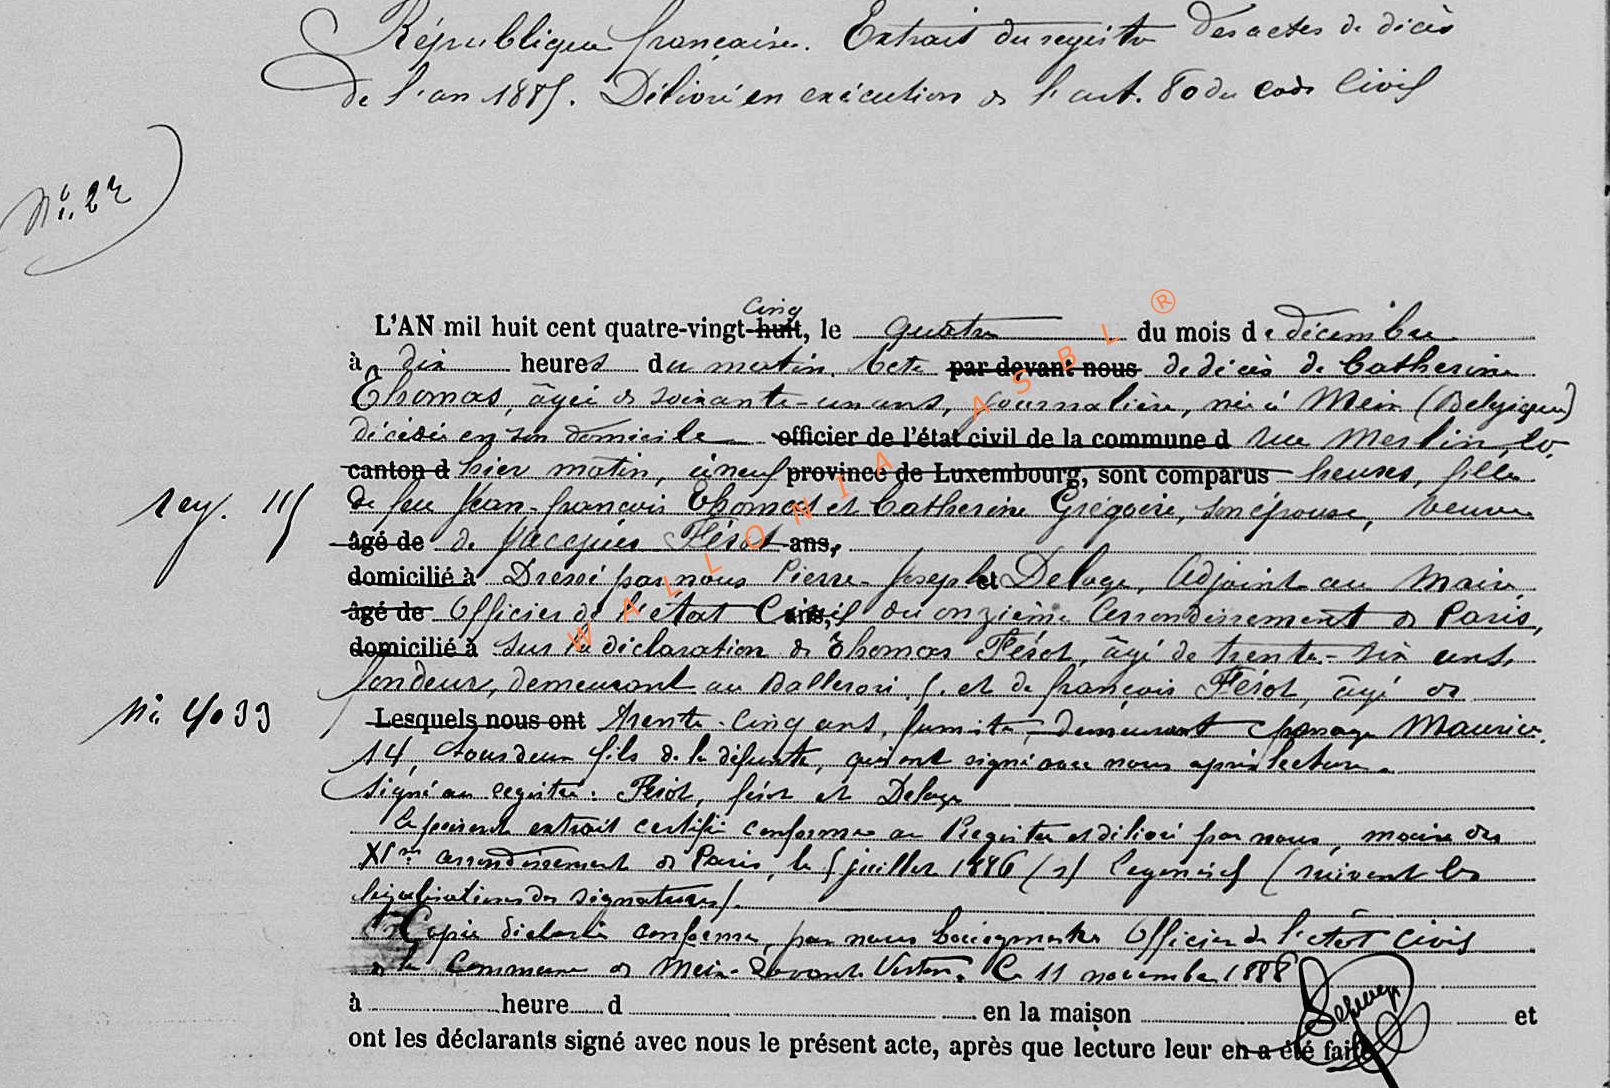 République française. Extrait du registre des actes de décès
de l'an 1885. Délivré en exécution de l'art. 80 du code Civil
N° 22
cinq
L'AN mil huit cent quatre-vingt-huit, le quatre du mois de décembre
à dix heures du matin. Acte par devant nous de décès de Catherine
Thomas, âgée de soixante-un ans, journalière, née à Meix (Belgique)
décédée en son domicile officier de l'état civil de la commune d rue Merlin,
canton d hier matin, à neuf province de Luxembourg, sont comparus heures, fille
Reg. 115
de feu Jean-françois Thomas et Catherine Grégoire, son épouse, veuve
âgé de de Jacques Férot ans,
domicilié à Dressé par nous Pierre-Joseph et Delage, Adjoint au Maire,
âgé de Officier de l'état Civil ans, du onzième Arrondissement de Paris,
domicilié à sur la déclaration de Thomas Férot, âgé de trente-six ans,
fondeur, demeurant au et de françois Férot, âgé de
N° 4033
Lesquels nous ont trente-cinq ans, fumiste, demeurant passage Maurice,
14, tous deux fils de la défunte, qui ont signé avec nous après lecture.
Signé au registre: Férot, férot et Delage
Le présent extrait certifié conforme au Registre et délivré par nous, maire du
XIme arrondissement de Paris, le 5 juillet 1886 (s) (suivent les
légalisations des signatures).
Copie déclarée conforme, par nous bourgmestre Officier de l'état Civil
de la Commune de Meix-devant-Virton. Ce 11 novembre 1888
à heure d en la maison et
ont les déclarants signé avec nous le présent acte, après que lecture leur en a été faite
WALLONIA ASBL ®